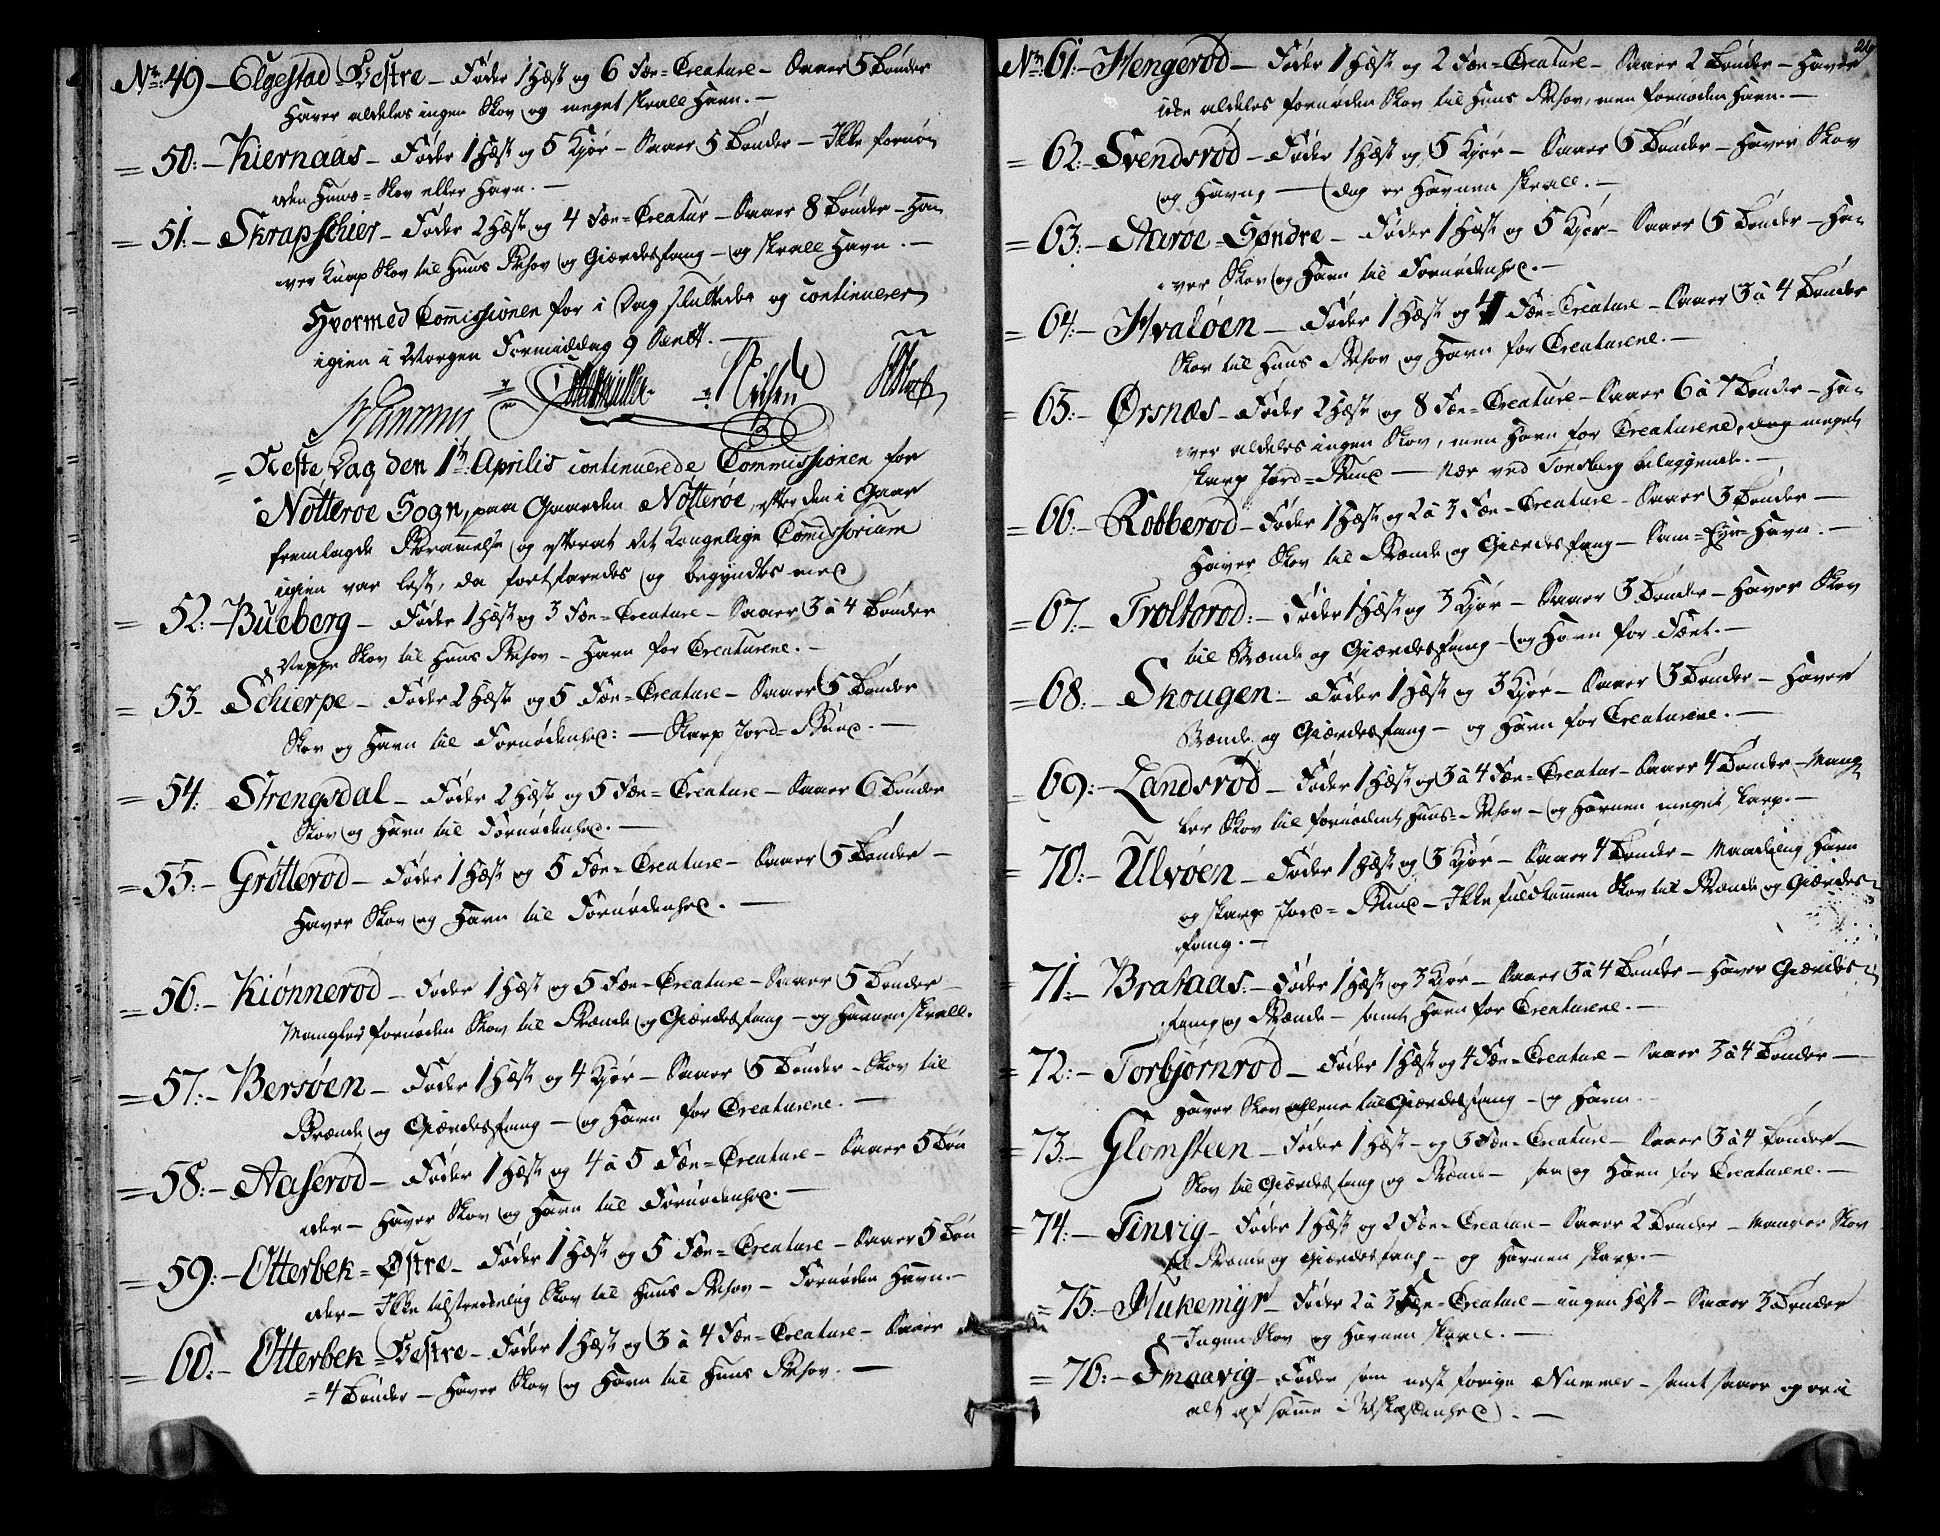 No. 49 – Elgestad Vestre – Føder 1 Hæst og 6 Fæe=Creature – Saaer 5 Tønder
Haver aldeles ingen Skov og meget skrall Havn. –
= 50: – Kiernaas – Føder 1 Hæst og 5 Kjør – Saaer 5 Tønder – Ikke fornø-
den Huus=Skov eller Havn. –
= 51: – Skrapschier – Føder 2 Hæst og 4 Fæe=Creatur – Saaer 8 Tønder – Ha-
ver knap Skov til Huus Behov og Giærdesfang – og skrall Havn. –
Hvormed Commissionen for i Dag sluttedes og continuerer
igien i Morgen Formiddag 9 Slett. –
Neste Dag den 1te Aprilis continuerede Commissionen for
Nøtterøe Sogn, paa Gaarden Nøtterøe, efter den i Gaar
fremlagde Berammelse og efterat det Kongelige Commissorium
igien var lest, da fortfaredes og begyndtes med
= 52: – Bueberg – Føder 1 Hæst og 3 Fæe=Creature – Saaer 3 a 4 Tønder
Neppe Skov til Huus Behov – Havn for Creaturene. –
= 53 – Schierpe – Føder 2 Hæst og 5 Fæe=Creature – Saaer 5 Tønder
Skov og Havn til Fornødenhed: – Skarp Jord=Bund. –
= 54: Strengsdal – Føder 2 Hæst og 5 Fæe=Creature – Saaer 6 Tønder
Skov og Havn til Fornødenhed. –
= 55: – Grøtterød – Føder 1 Hæst og 5 Fæe=Creature – Saaer 5 Tønder –
Haver Skov og Havn til Fornødenhed. –
= 56: – Kiønnerød – Føder 1 Hæst og 5 Fæe=Creature – Saaer 5 Tønder –
Mangler fornøden Skov til Brænde og Giærdesfang – og Havnen skrall.
= 57: – Bersøen – Føder 1 Hæst og 4 Kjør – Saaer 5 Tønder – Skov til
Brænde og Giærdesfang – og Havn for Creaturene. –
= 58: – Aaserød – Føder 1 Hæst og 4 a 5 Fæe=Creature – Saaer 5 Tøn
der – Haver Skov og Havn til Fornødenhed. –
= 59: – Otterbek=Østre – Føder 1 Hæst og 5 Fæe=Creature – Saaer 5 Tøn
der – Ikke tilstrekkelig Skov til Huus Behov – Fornøden Havn. –
= 60: – Otterbek=Vestre – Føder 1 Hæst og 3 a 4 Fæe=Creature – Saaer
= 4 Tønder – Haver Skov og Havn til Huus Behov. –
No. 61: – Hengerød – Føder 1 Hæst og 2 Fæe=Creature – Saaer 2 Tønder – Haver
ikke aldeles fornøden Skov til Huus Behov, men fornøden Havn. –
= 62: – Svendsrød – Føder 1 Hæst og 5 Kjør – Saaer 5 Tønder – Haver Skov
og Havn, – dog er Havnen skrall. –
= 63: – Aaroe=Søndre – Føder 1 Hæst og 5 Kjør – Saaer 5 Tønder – Ha-
ver Skov og Havn til Fornødenhed. –
= 64: – Hvaløen – Føder 1 Hæst og 4 Fæe=Creature – Saaer 3 a 4 Tønder
Skov til Huus Behov og Havn for Creaturene. –
= 65: – Ørsnæs – Føder 2 Hæst og 8 Fæe=Creature – Saaer 6 a 7 Tønder – Ha-
ver aldeles ingen Skov, men Havn for Creaturene, dog meget
skarp Jord=Bund – Nær ved Tønsberg beliggende. –
= 66: – Robberød – Føder 1 Hæst og 2 a 3 Fæe=Creature – Saaer 3 Tønder –
Haver Skov til Brænde og Giærdesfang – Sam=Eye=Havn. –
= 67: – Troltorød: – Føder 1 Hæst og 3 Kjør – Saaer 3 Tønder – Haver Skov
til Brænde og Giærdesfang – og Havn for Fæet. –
= 68: – Skougen – Føder 1 Hæst og 3 Kjør – Saaer 3 Tønder – Haver
Brænde og Giærdesfang – og Havn for Creaturene. –
= 69: – Landsrød – Føder 1 Hæst og 3 a 4 Fæe=Creatur – Saaer 4 Tønder – Mang
ler Skov til fornødent Huus=Behov – og Havnen meget skarp. –
= 70: – Ulvøen – Føder 1 Hæst og 3 Kjør – Saaer 4 Tønder – Maadelig Havn
og skarp Jord=Bund – Ikke fuldkommen Skov til Brænde og Giærdes-
fang. –
71: – Brataas: – Føder 1 Hæst og 3 Kjør – Saaer 3 a 4 Tønder – Haver Giærdes
fang og Brænde – samt Havn for Creaturene. –
= 72: – Torbjørnrød – Føder 1 Hæst og 4 Fæe=Creature – Saaer 3 a 4 Tønder –
Haver Skov allene til Giærdesfang – og Havn
= 73: – Glomsteen – Føder 1 Hæst – og 3 Fæe=Creature – Saaer 3 a 4 Tønder –
Skov til Giærdesfang og Brænde – saa og Havn for Creaturene. –
= 74: – Tinvig – Føder 1 Hæst og 2 Fæe=Creature – Saaer 2 Tønder – Mangler Skov
til Brænde og Giærdesfang – og Havnen skarp. –
= 75: – Mukemyr – Føder 2 a 3 Fæe=Creature – ingen Hæst – Saaer 3 Tønder
Ingen Skov og Havnen skrall. –
= 76: – Smaavig – Føder som nest forige Nummer – samt saaer og er i
alt af samme Beskaffenhed. –